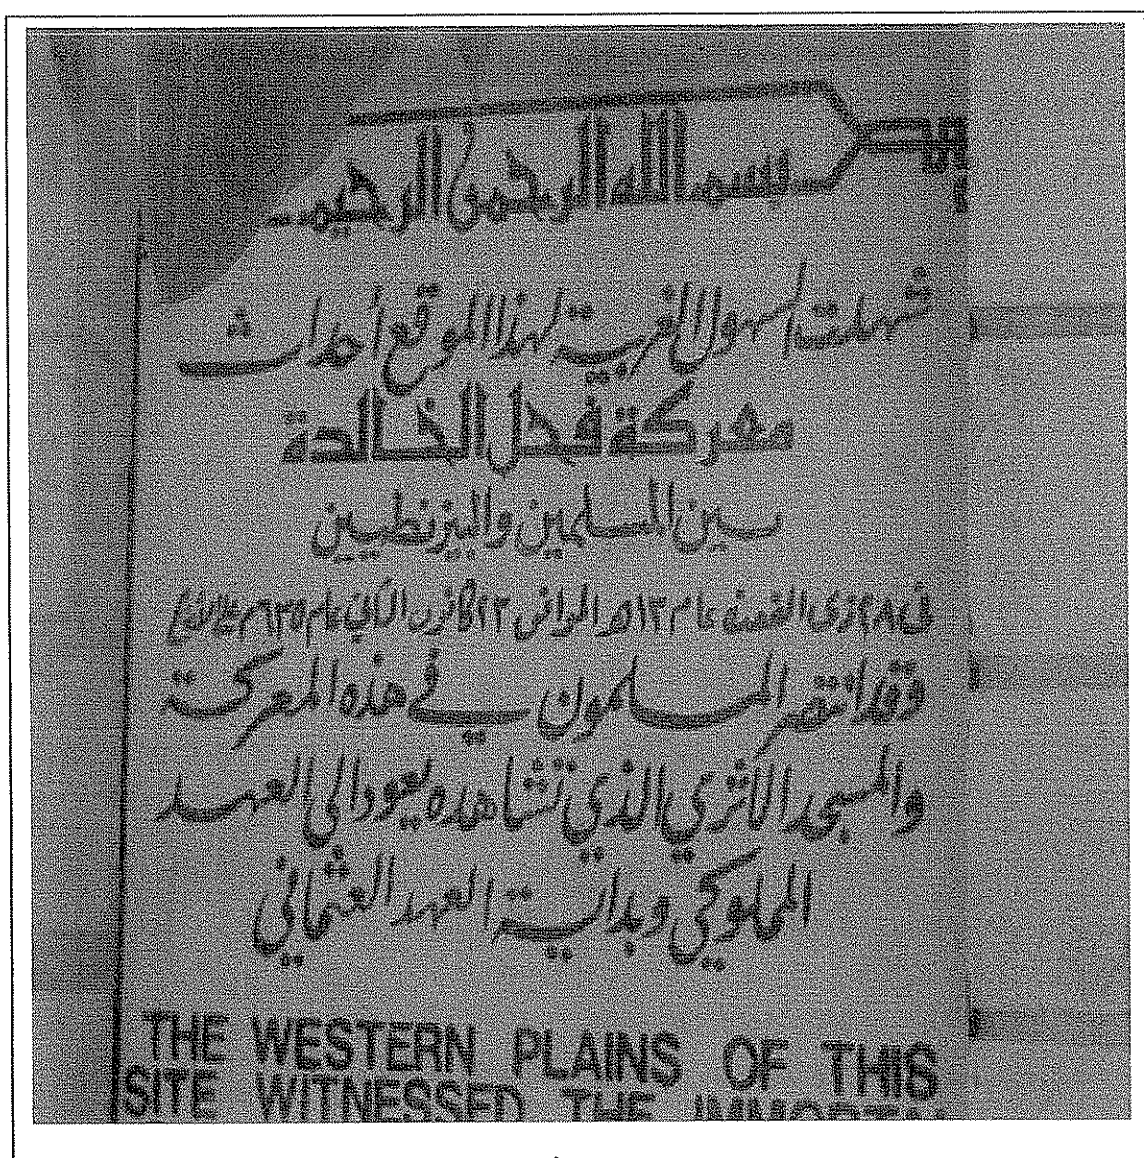 بسم الله الرحمن الرحيم
شهدت السهول الغربية لهذا الموقع أحداث
معركة فحل الخالدة
بين المسلمين والبيزنطيين
في ٢٨ ذي القعدة عام ١٣هـ الموافق ٢٢ كانون الثاني عام ٦٣٥م
وقد انتصر المسلمون في هذه المعركة
والمسجد الاثري الذي تشاهده يعود الى العهد
المملوكي وبداية العهد العثماني
THE WESTERN PLAINS OF THIS
SITE WITNESSED THE IMMORTAL